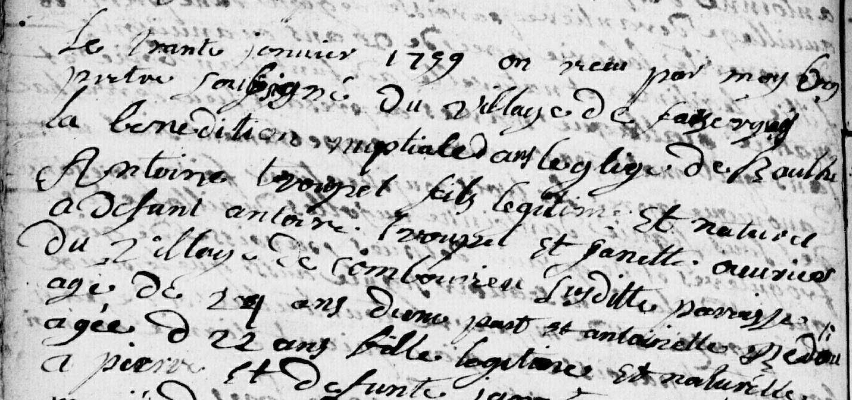 Le trante janvier 1759 on recu par moy
pretre soussigné Du village De
la benedition nuptiale dans leglize de
Antoine trouquet fils legitime Et naturel
a defunt antoine trouquet Et janette ouvrier
Du village De Combourieu susditte paroisse
age De 24 ans dune part Et antoinette Redou
agée D 22 ans fille legitime Et naturelle
a pierre Et defunte